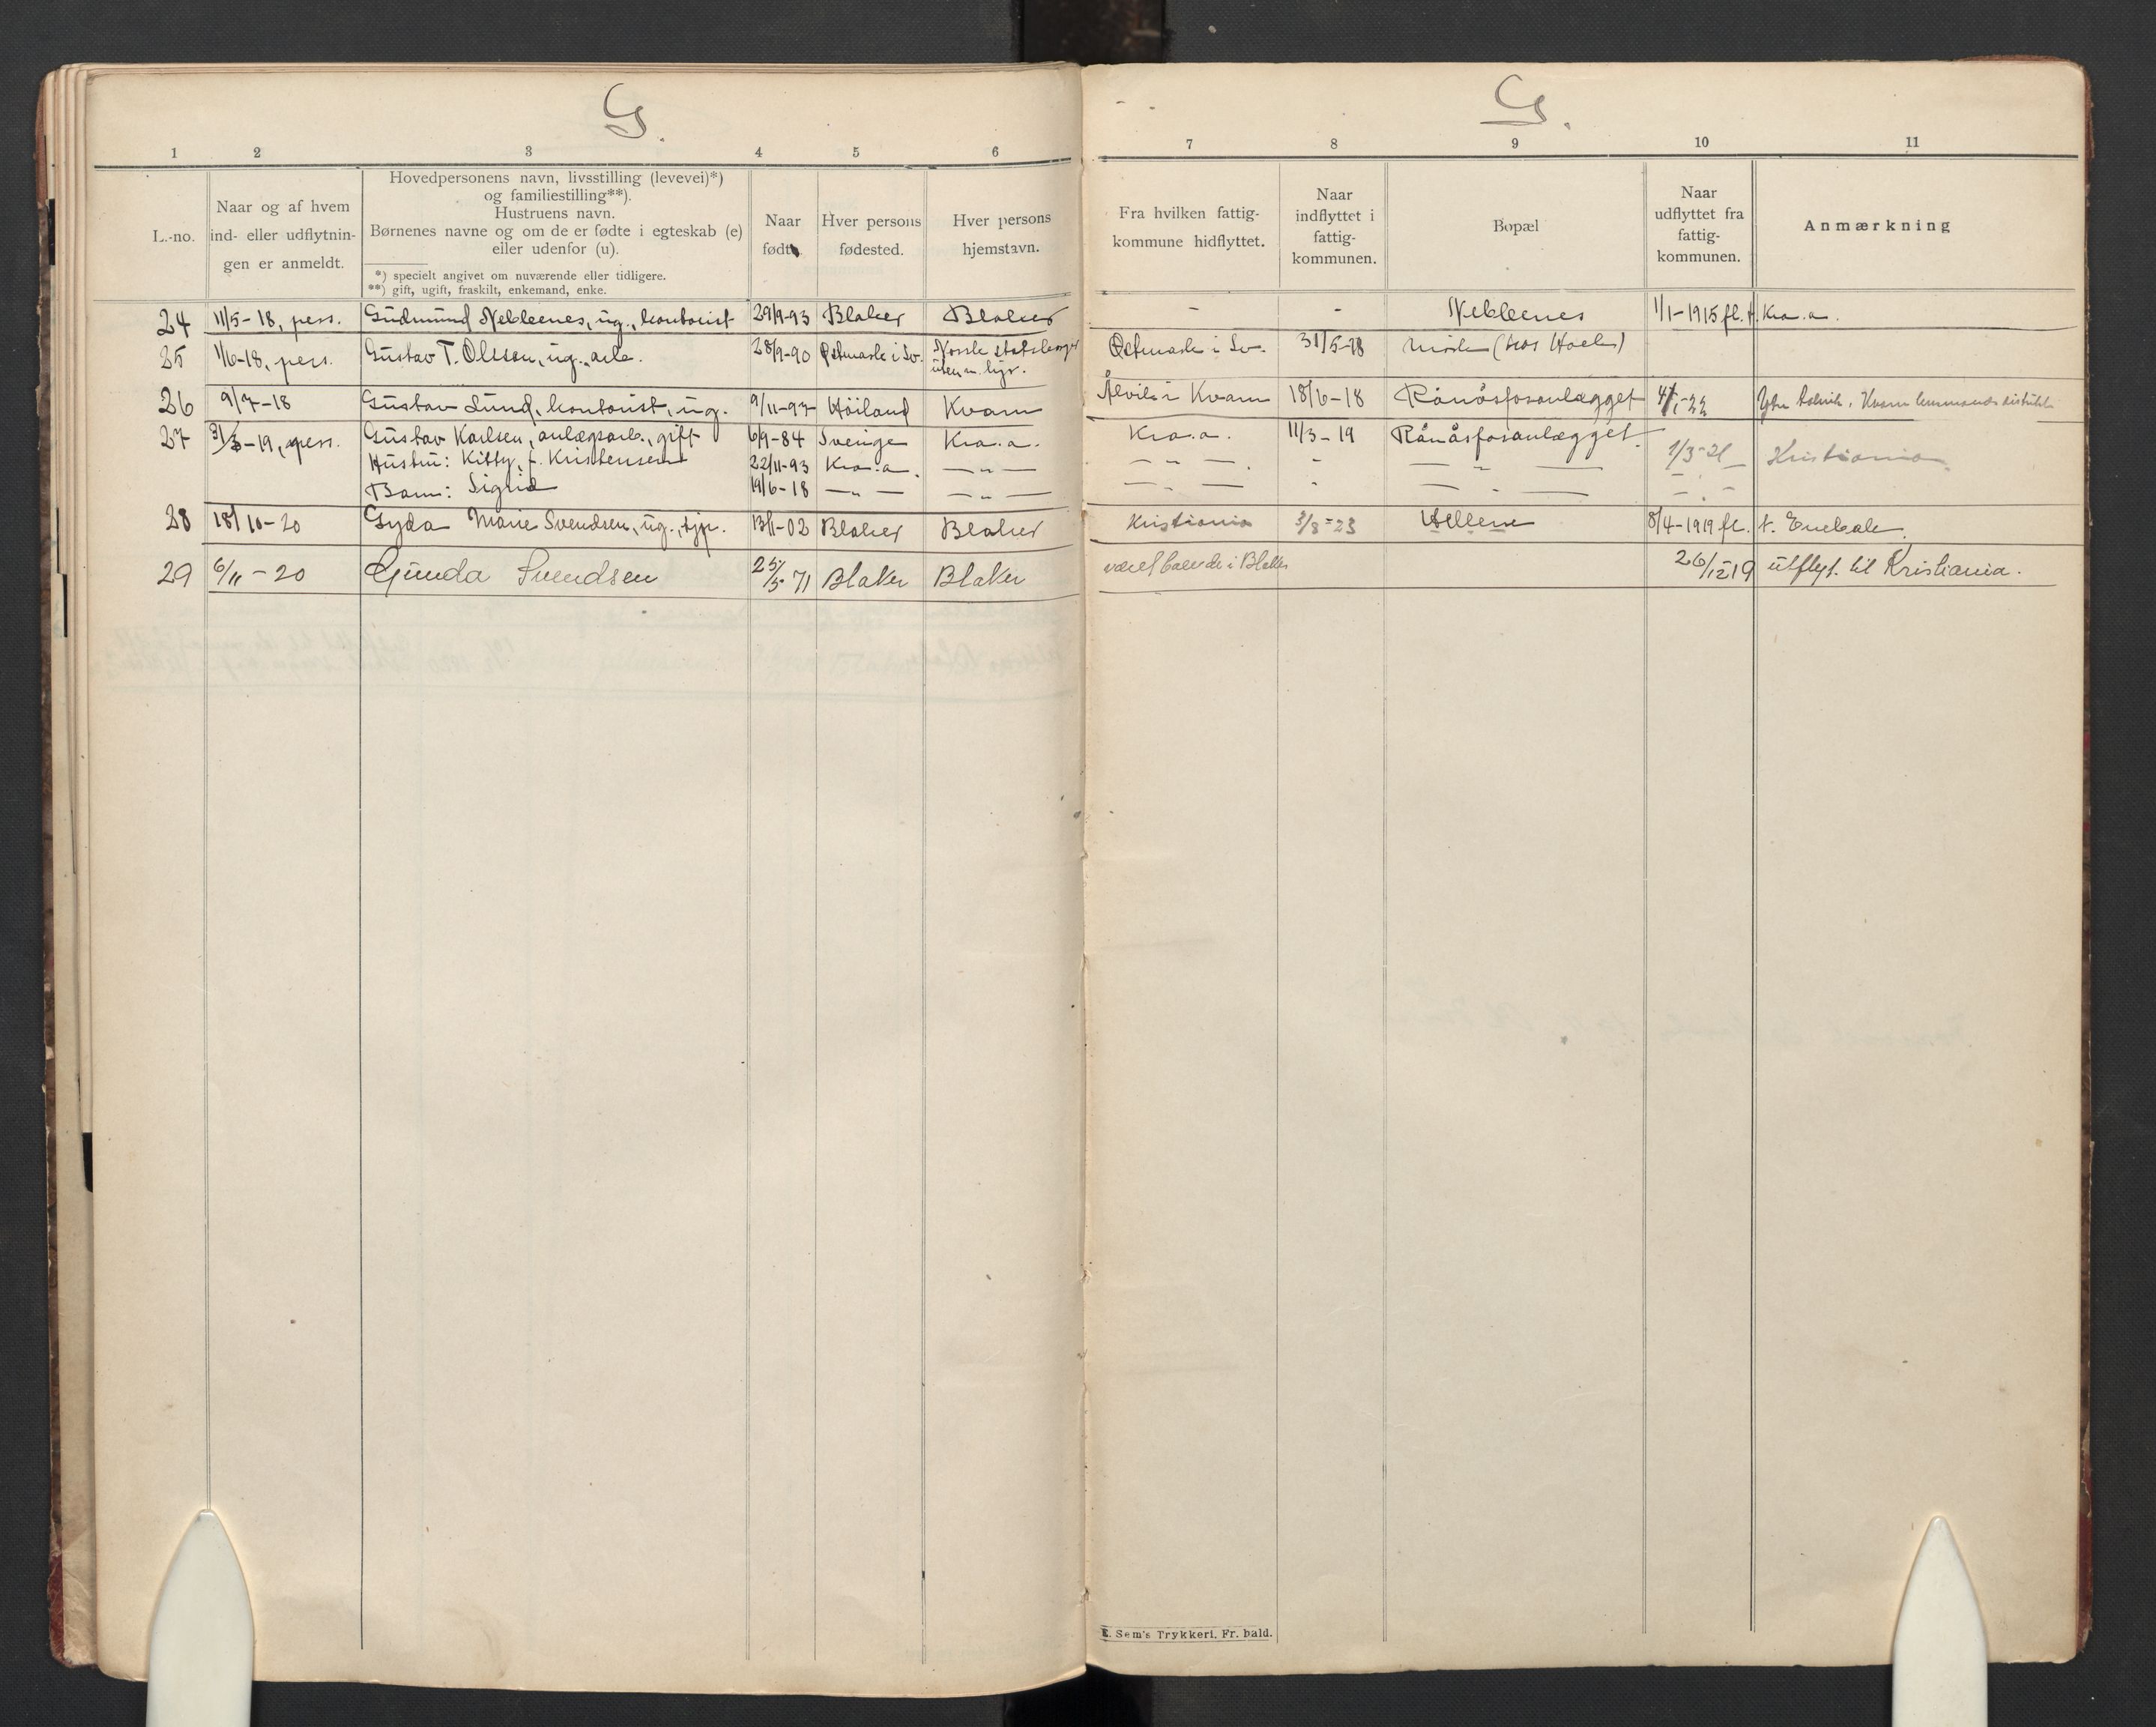 G.
G.
1 2 3 4 5 6 7 8 9 10 11
L.-no.
Naar og af hvem
ind- eller udflytnin-
gen er anmeldt.
Hovedpersonens navn, livsstilling (levevei)*)
og familiestilling**).
Hustruens navn.
Børnenes navne og om de er fødte i egteskab (e)
eller udenfor (u).
*) specielt angivet om nuværende eller tidligere.
**) gift, ugift, fraskilt, enkemand, enke.
Naar
født
Hver persons
fødested.
Hver persons
hjemstavn.
Fra hvilken fattig-
kommune hidflyttet.
Naar
indflyttet i
fattig-
kommunen.
Bopæl
Naar
udflyttet fra
fattig-
kommunen.
Anmærkning
24 11/5-18, pers. Gudmund Nebbenes, ug., kontorist 29/9-93 Blaker Blaker - - Nebbenes 1/1-1915 fl. t. Kra.a.
25 1/6-18, pers. Gustav T. Olssen, ug., arb. 28/9-90 Østmark i Sv. Norsk statsborger Østmark i Sv. 31/5-18 (hos Hoel)
26 9/7-18 Gustav Lund, kontorist, ug. 9/11-97 Höiland Kvam Ålvik i Kvam 18/6-18 Rånåsfosanlægget 4/1-22 Kvam lensmandsdistrikt
27 -19, pers. Gustav Karlsen, anlægsarb., gift 6/9-84 Sverige Kra.a. Kra.a. 11/3-19 Rånåsfosanlægget 1/3-21 Kristiania
Hustru: Kitty, f. Kristensen 22/11-93 Kra.a. — „ — — „ — - — „ —
Barn: Sigrid 19/6-18 — „ — — „ — — „ — - — „ —
28 18/10-20 Gyda Marie Svendsen, ug., tjp. 13/1-02 Blaker Blaker Kristiania 3/8-23 8/4-1919 fl. t. Enebak.
29 6/11-20 Gunda Svendsen 25/5 71 Blaker Blaker været boende i Blaker 26/12 19 utflyt. til Kristiania.
E. Sem's Trykkeri, Fr.hald.